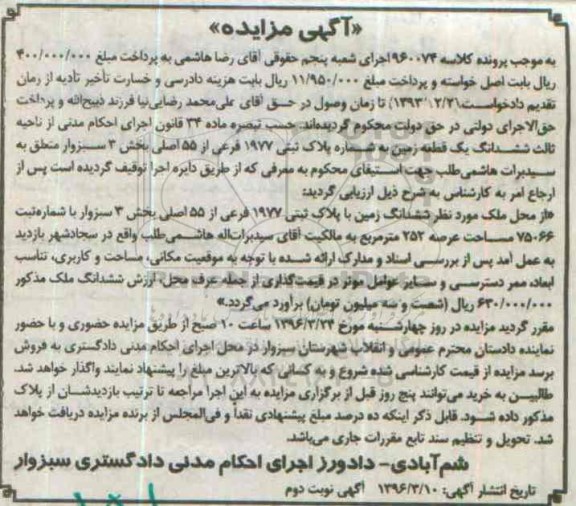 «آگهی مزایده»
به موجب پرونده کلاسه ۹۶۰۰۷۴ اجرای شعبه پنجم حقوقی آقای رضا هاشمی به پرداخت مبلغ ۴۰۰/۰۰۰/۰۰۰
ریال بابت اصل خواسته و پرداخت مبلغ ۱۱/۹۵۰/۰۰۰ ریال بابت هزینه دادرسی و خسارت تأخیر تأدیه از زمان
تقدیم دادخواست (۱۳۹۳/۱۲/۲۱) تا زمان وصول در حق آقای علی‌محمد رضایی‌نیا فرزند ذبیح‌الله و پرداخت
حق‌الاجرای دولتی در حق دولت محکوم گردیده‌اند. حسب تبصره ماده ۳۴ قانون اجرای احکام مدنی از ناحیه
ثالث ششدانگ یک قطعه زمین به شماره پلاک ثبتی ۱۹۷۷ فرعی از ۵۵ اصلی بخش ۳ سبزوار متعلق به
سیدبرات هاشمی‌طلب جهت استیفای محکوم به معرفی که از طریق دایره اجرا توقیف گردیده است پس از
ارجاع امر به کارشناس به شرح ذیل ارزیابی گردید:
«از محل ملک مورد نظر ششدانگ زمین با پلاک ثبتی ۱۹۷۷ فرعی از ۵۵ اصلی بخش ۳ سبزوار با شماره‌ثبت
۷۵۰۶۶ مساحت عرصه ۲۵۲ مترمربع به مالکیت آقای سیدبرات‌اله هاشمی‌طلب واقع در سجادشهر بازدید
به عمل آمد پس از بررسی اسناد و مدارک ارائه شده با توجه به موقعیت مکانی، مساحت و کاربری، تناسب
ابعاد، ممر دسترسی و سایر عوامل موثر در قیمت‌گذاری از جمله عرف محل، ارزش ششدانگ ملک مذکور
۶۳۰/۰۰۰/۰۰۰ ریال (شصت و سه میلیون تومان) برآورد می‌گردد.»
مقرر گردید مزایده در روز چهارشنبه مورخ ۱۳۹۶/۳/۲۴ ساعت ۱۰ صبح از طریق مزایده حضوری و با حضور
نماینده دادستان محترم عمومی و انقلاب شهرستان سبزوار در محل اجرای احکام مدنی دادگستری به فروش
برسد مزایده از قیمت کارشناسی شده شروع و به کسانی که بالاترین مبلغ را پیشنهاد نمایند واگذار خواهد شد.
طالبین به خرید می‌توانند پنج روز قبل از برگزاری مزایده به این اجرا مراجعه تا ترتیب بازدیدشان از پلاک
مذکور داده شود. قابل ذکر اینکه ده درصد مبلغ پیشنهادی نقداً و فی‌المجلس از برنده مزایده دریافت خواهد
شد. تحویل و تنظیم سند تابع مقررات جاری می‌باشد.
شم‌آبادی- دادورز اجرای احکام مدنی دادگستری سبزوار
تاریخ انتشار آگهی: ۱۳۹۶/۳/۱۰ آگهی نوبت دوم